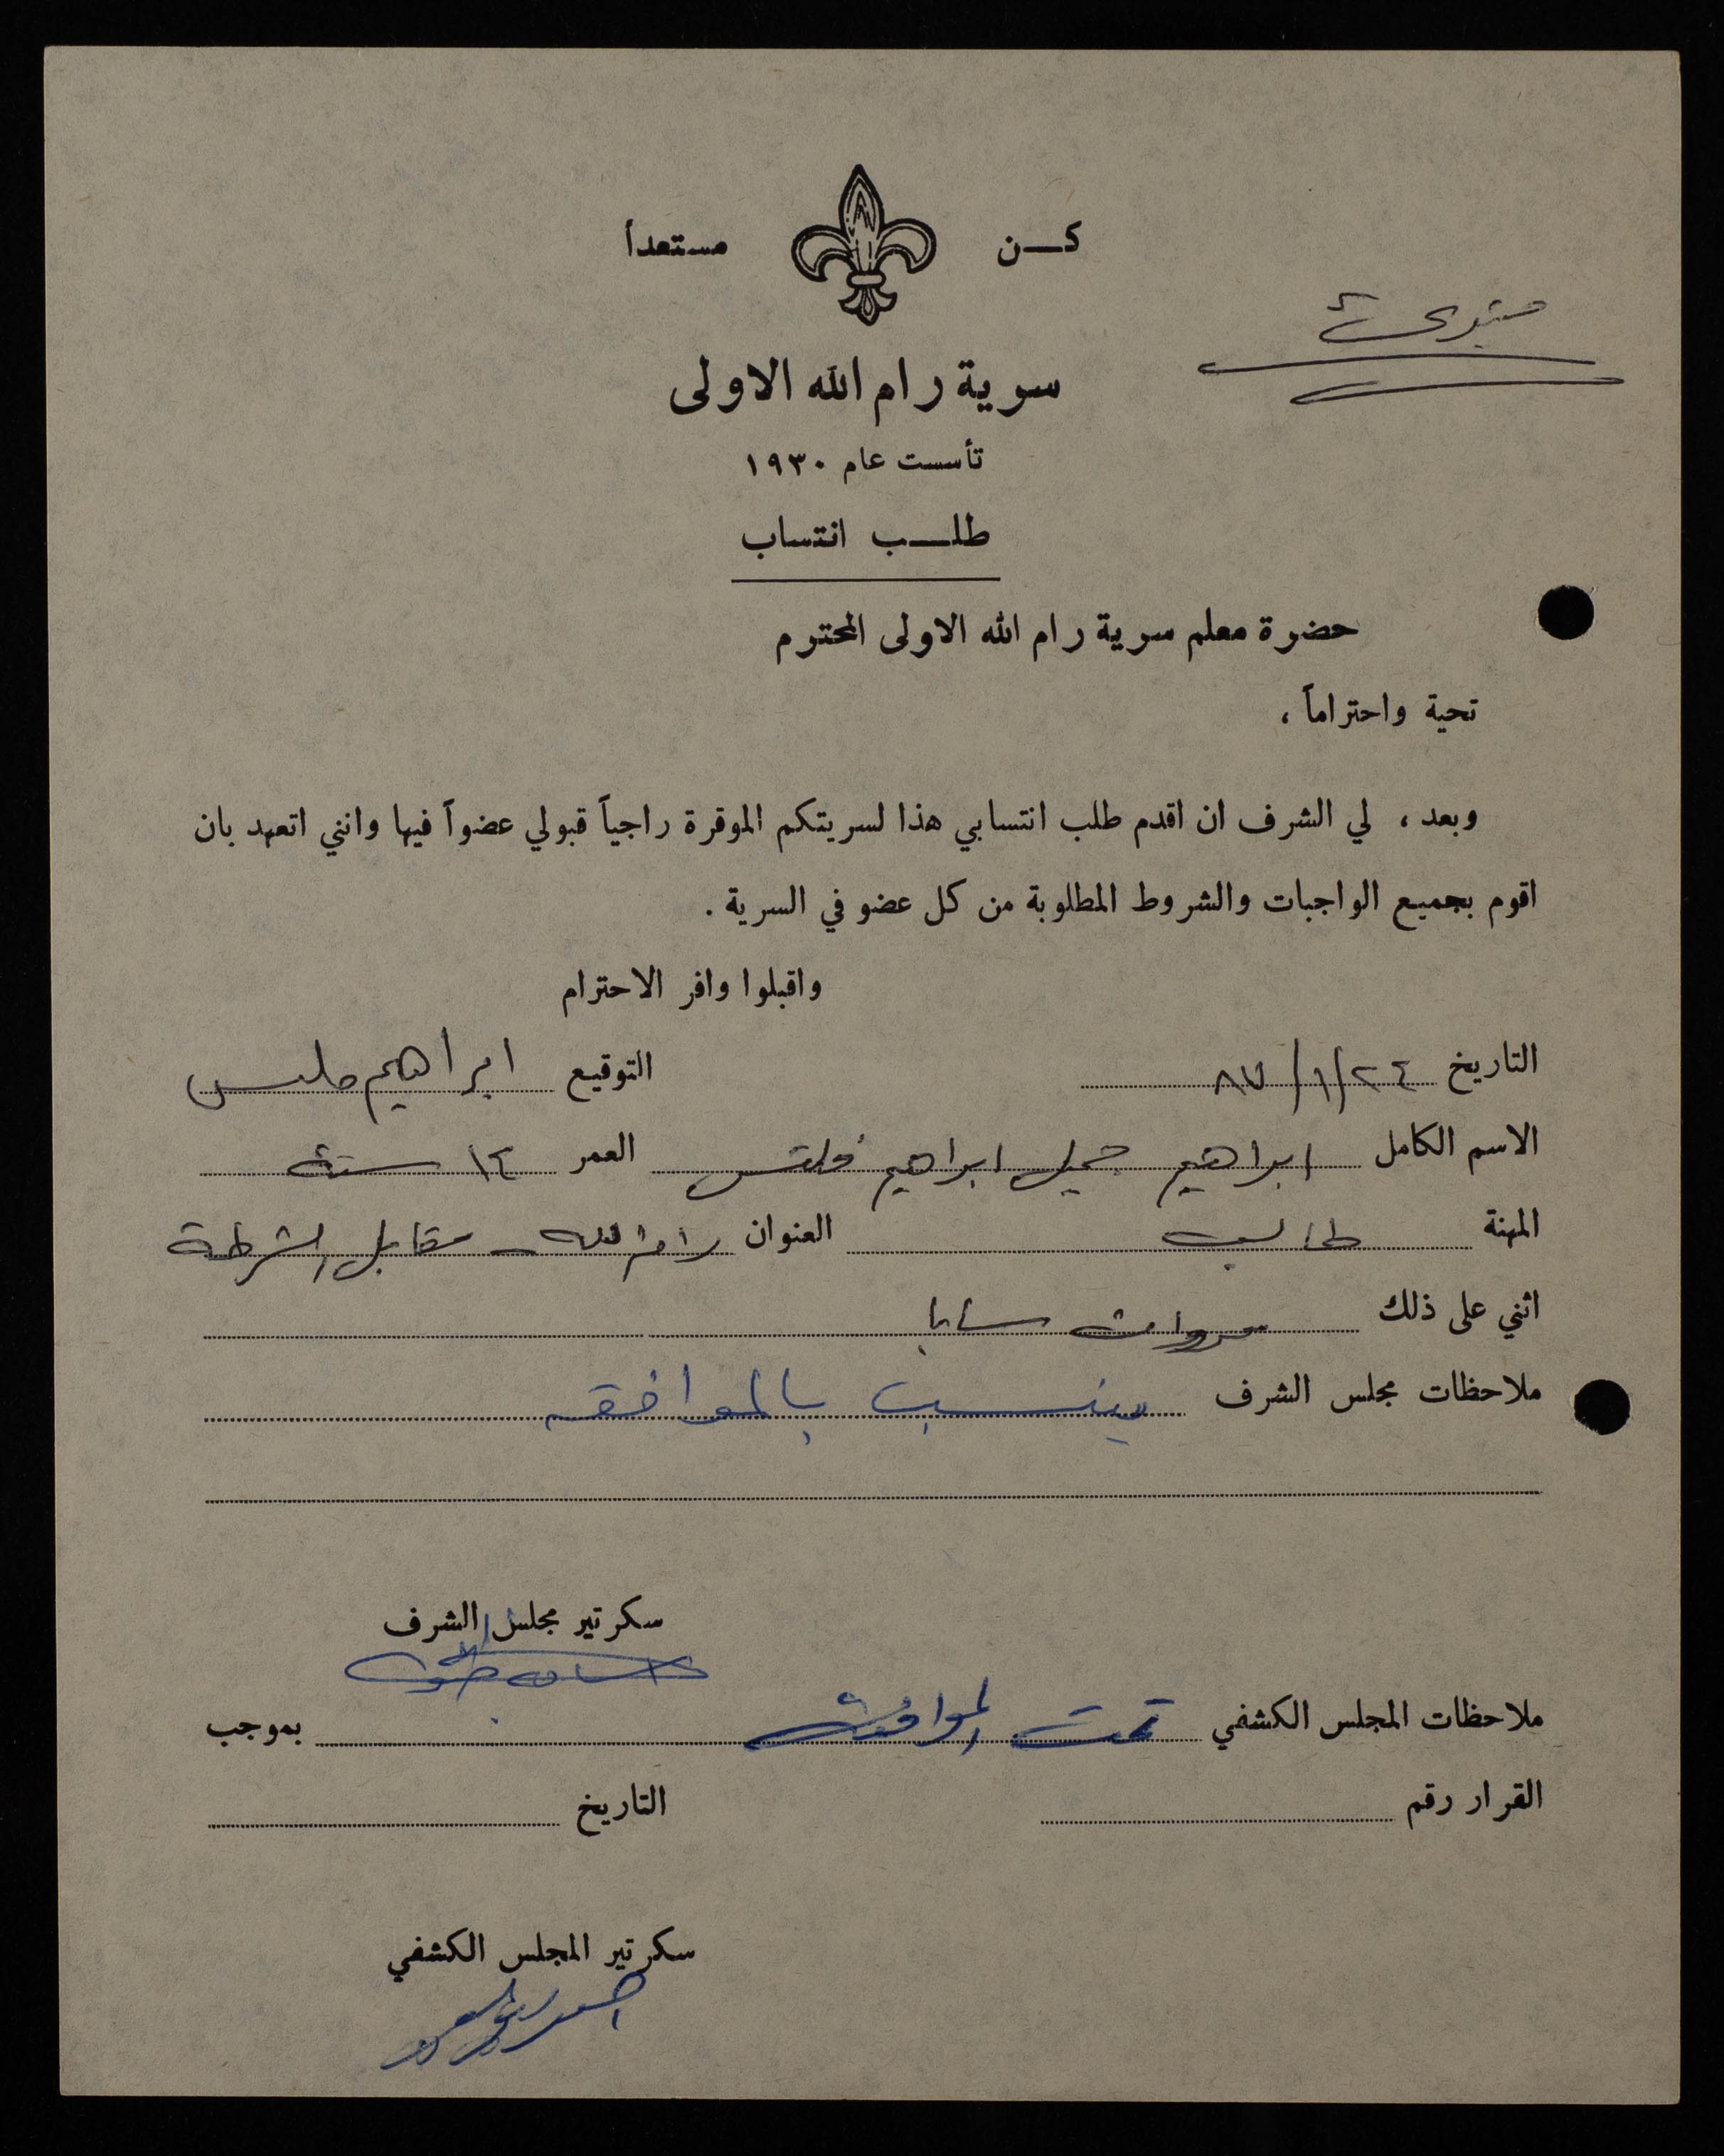 كن مستعداً
مبتدئ
سرية رام الله الاولى
تأسست عام ١٩٣٠
طلب انتساب
حضرة معلم سرية رام الله الاولى المحترم
تحية واحتراماً ،
وبعد ، لي الشرف ان اقدم طلب انتسابي هذا لسريتكم الموقرة راجياً قبولي عضواً فيها وانني اتعهد بان
اقوم بجميع الواجبات والشروط المطلوبة من كل عضو في السرية .
واقبلوا وافر الاحترام
التاريخ ٢٤/١/٨٧ التوقيع ابراهيم ملتس
الاسم الكامل ابراهيم جميل ابراهيم العمر ١٤ سنة
المهنة طالب العنوان رام الله - مقابل الشرطة
اثني على ذلك مروان سابا
ملاحظات مجلس الشرف ينسب بالموافقه
سكرتير مجلس الشرف
ملاحظات المجلس الكشفي تمت الموافقة بموجب
القرار رقم التاريخ
سكرتير المجلس الكشفي